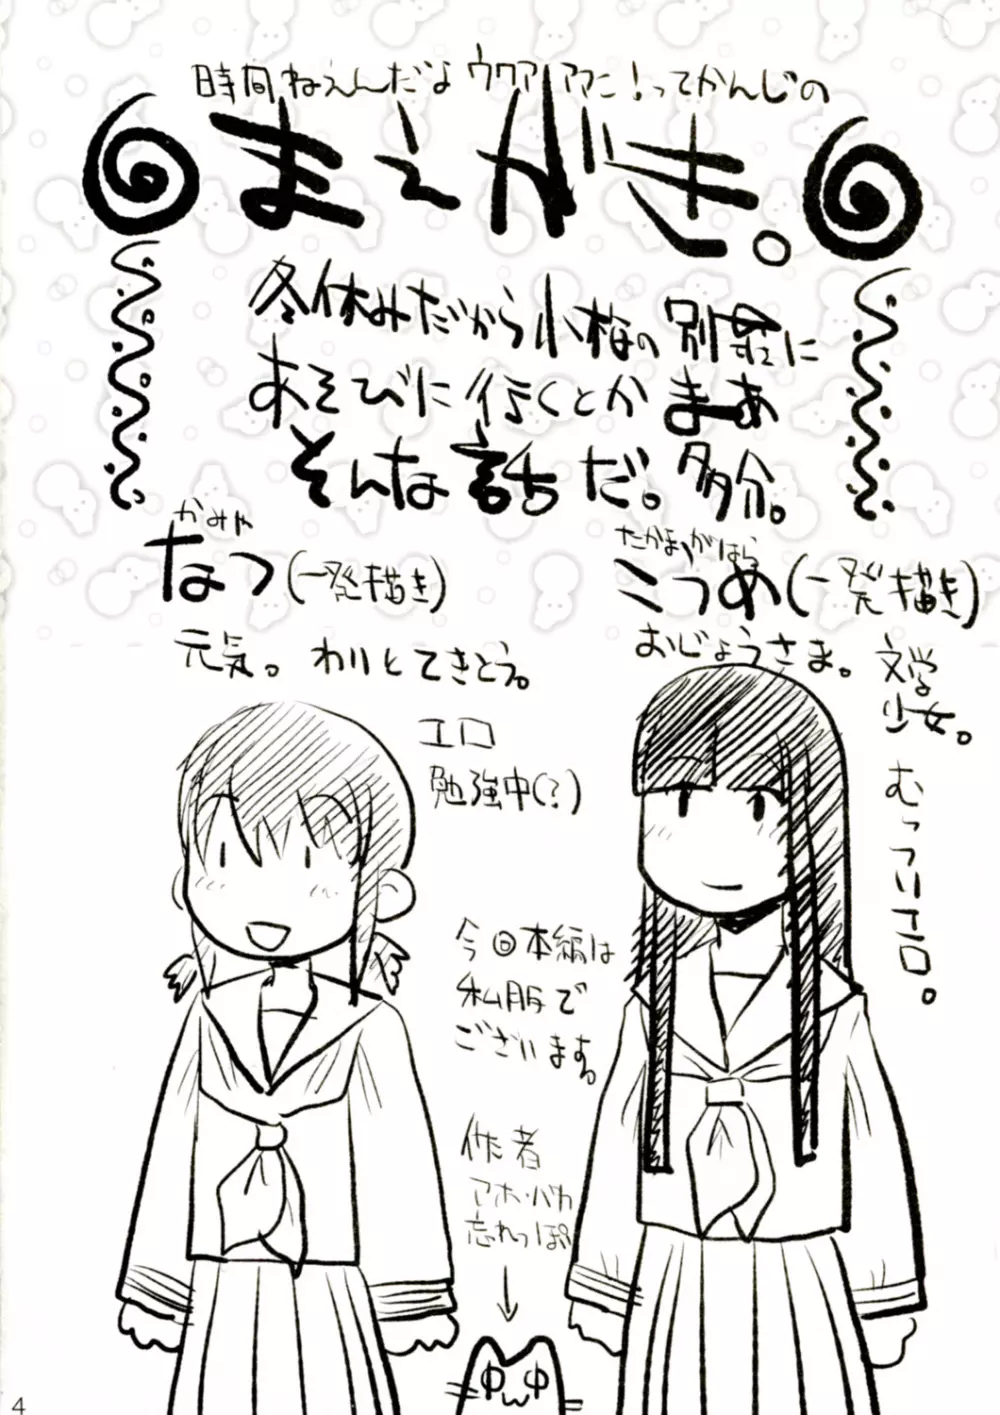 時間ねえんだよ ウワアアアン!ってかんじの
まえがき。
冬休みだから小梅の別荘に
あそびに行くとか まぁ
そんな話だ。多分。
かみや
なつ(一発描き)
元気。わりとてきとう。
エロ
勉強中(?)
たかまがはら
こうめ(一発描き)
おじょうさま。文学
少女。
むっつりエロ。
今回本編は
私服で
ございます。
作者
アホ・バカ
忘れっぽい
4